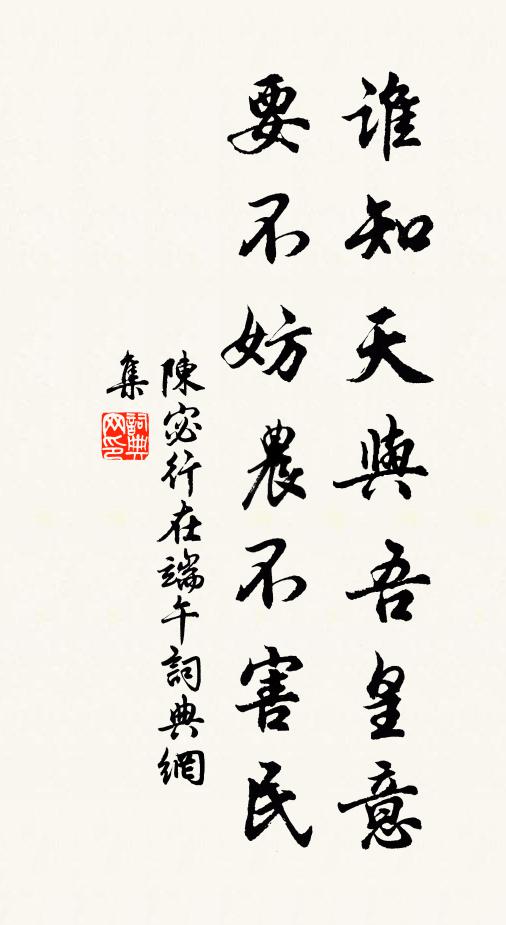 誰知天與吾皇意
要不妨農不害民
陳宓行在端午詞典網
集
詞典
网印